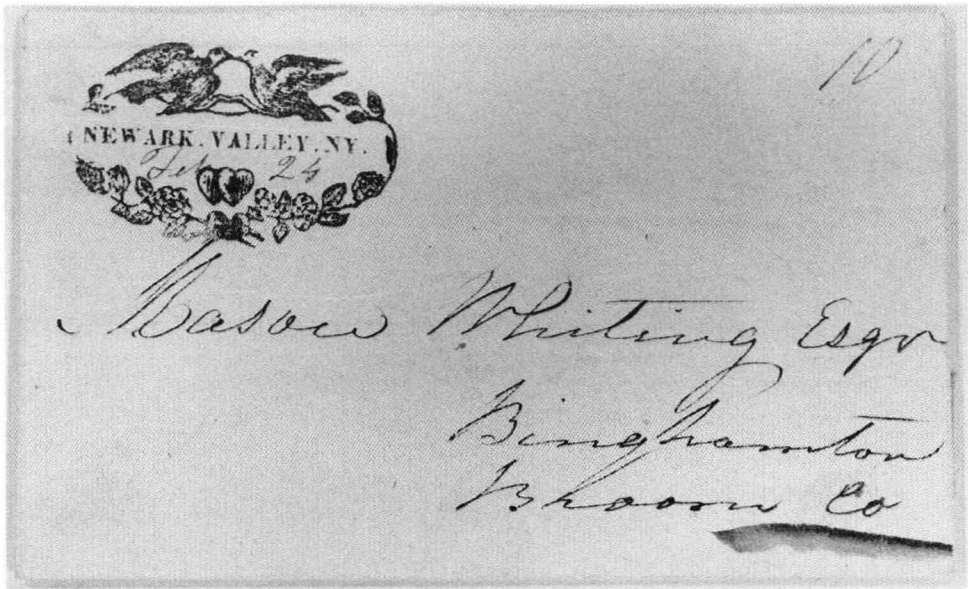 10
NEWARK. VALLEY. NY.
Feb 24
Mason Whiting Esqr
Binghamton
Broom Co